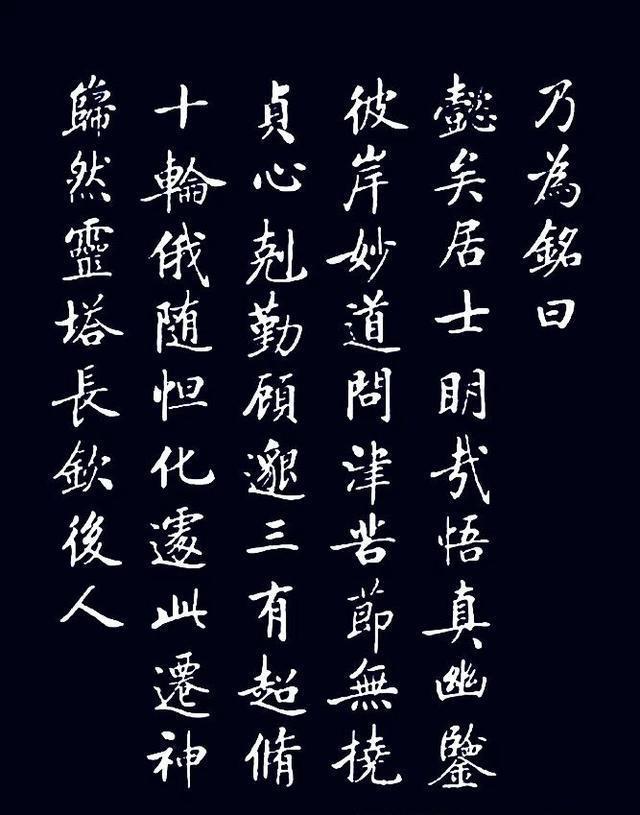 乃為銘曰
懿矣居士明哉悟真幽鑒
彼岸妙道問津苦節無撓
貞心剋勤顧邈三有超脩
十輪俄随怛化遽此遷神
歸然靈塔長欽後人